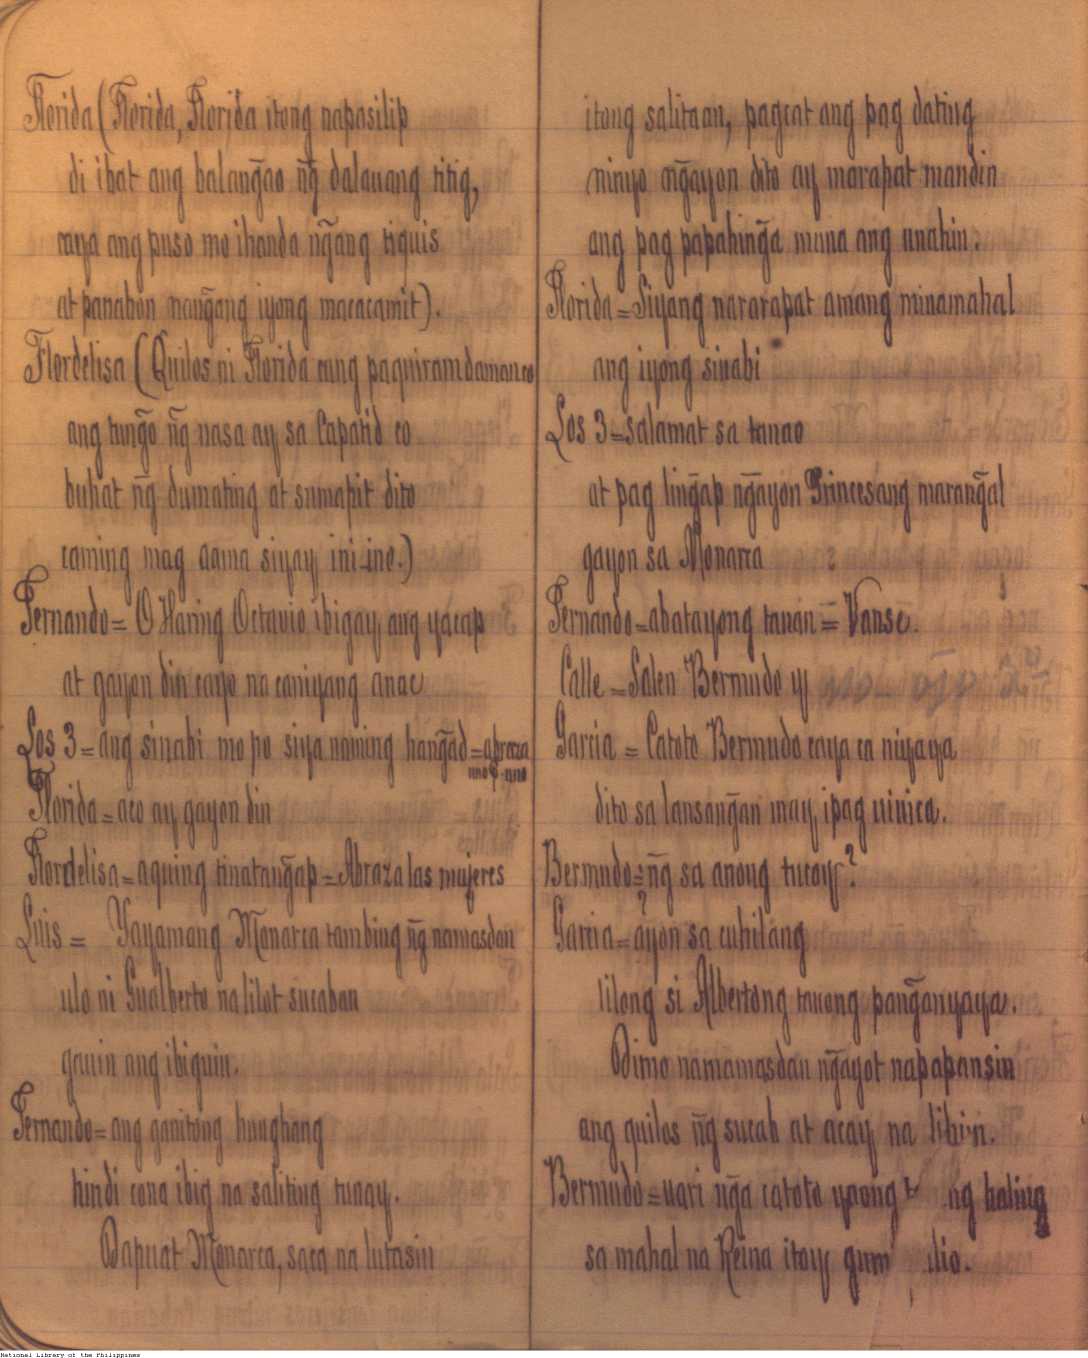 Florida (Florida, Florida itong napasilip
di ibat ang balang̃ao ng̃ dalauang titig,
caya ang puso mo ihanda ng̃ang tiquis
at panahon nang̃ang iyong macacamit).
Flordelisa (Quilos ni Florida cung paquiramdaman co
ang tung̃o ng̃ nasa ay sa Capatid co
buhat ng̃ dumating at sumapit dito
caming mag aama siyay ini-ino.)
Fernando = O Haring Octavio ibigay ang yacap
at gayon din cayo na caniyang anac
Los 3 = ang sinabi mo po siya naming hang̃ad = abraza
uno p. uno
Florida = aco ay gayon din
Flordelisa = aquing tinatang̃ap = Abraza las mujeres
Luis = Yayamang Monarca tambing ng̃ namasdan
ulo ni Gualberto na lilot sucaban
gauin ang ibiguin.
Fernando = ang ganitong hunghang
hindi cona ibig na saliting tunay.
Dapuat Monarca, saca na lutasin
itong salitaan, pagcat ang pag dating
ninyo ng̃ayon dito ay marapat mandin
ang pag papahing̃a muna ang unahin.
Florida = Siyang nararapat amang minamahal
ang iyong sinabi
Los 3 = salamat sa tanao
at pag ling̃ap ng̃ayon Princesang marang̃al
gayon sa Monarca
Fernando = abatayong tanan = Vanse.
Calle = Salen Bermudo y
Garcia = Catoto Bermudo caya ca niyaya
dito sa lansang̃an may ipag uinica.
Bermudo = ng̃ sa anong tucoy?
Garcia = ayon sa cuhilang
lilong si Albertong tauong pang̃anyaya.
Dimo namamasdan ng̃ayot napapansin
ang quilos ng̃ sucab at acay na libin.
Bermudo = uari ng̃a catoto yaong ng haling
sa mahal na Reina itoy